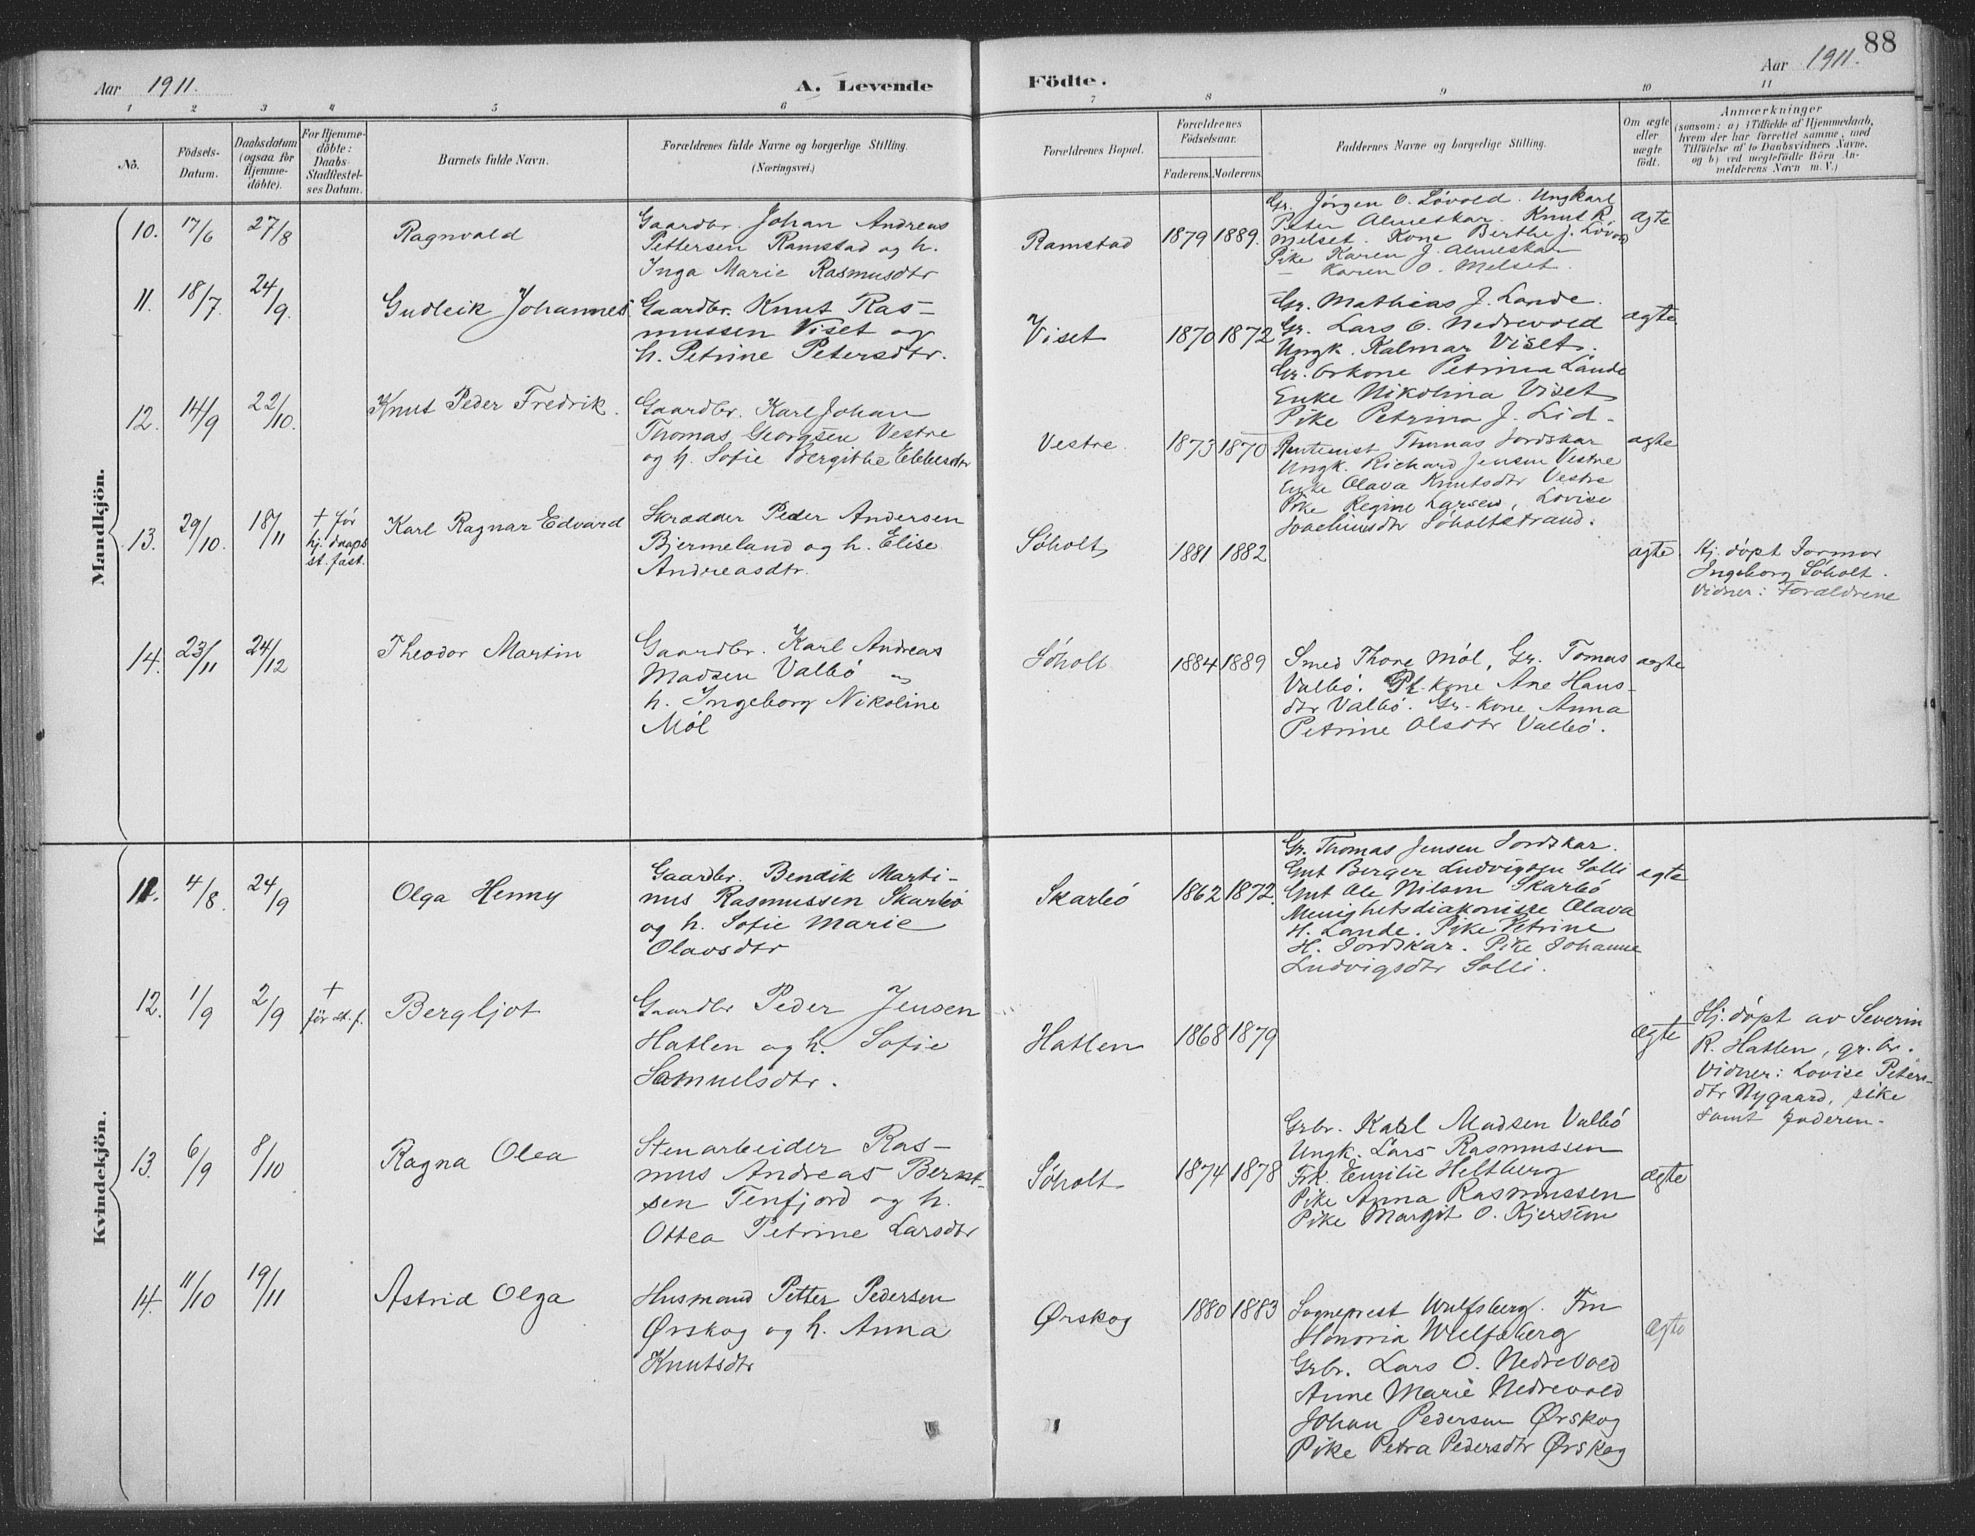 88
Aar 1911.
A. Levende Födte.
Aar 1911.
1 2 3 4 5 6 7 8 9 10 11
No.
Födsels-
Datum.
Daabsdatum
(ogsaa for
Hjemme-
döbte).
For Hjemme-
döbte:
Daabs-
Stadfæstel-
ses Datum.
Barnets fulde Navn.
Forældrenes fulde Navne og borgerlige Stilling.
(Næringsvei.)
Forældrenes Bopæl.
Forældrenes
Födselsaar.
Faderens. Moderens.
Faddernes Navne og borgerlige Stilling.
Om ægte
eller
uægte
födt.
Anmærkninger
(saasom: a) i Tilfælde af Hjemmedaab,
hvem der har forrettet samme, med
Tilföielse af to Daabsvidners Navne,
og b) ved uægtefödte Börn An-
melderens Navn m. V.)
Mandkjön.
10. 17/6 27/8
Ragnvald
Gaardbr. Johan Andreas
Pettersen Ramstad og h.
Inga Marie Rasmusdtr
Ramstad
1879 1889.
Gr. Jørgen O. Løvold. Ungkarl
Peter Almeskar. Knut R.
Melset. Kone Berthe J. Løvold
Pike Karen J. Almeskar
— Karen O. Melset.
ægte
11. 18/7 24/9.
Gudleik Johannes
Gaardbr. Knut Ras-
mussen Viset og
h. Petrine Petersdtr.
Viset
1870 1872
Gr. Mathias J. Lande.
Gr. Lars O. Nedrevold
Ungk. Kalmar Viset.
Gr. brkone Petrina Lande
Enke Nikolina Viset
Pike Petrina J. Lid-
ægte
12. 14/9 22/10.
Knut Peder Fredrik.
Gaardbr. Karl Johan
Thomas Georgsen Vestre
og h. Sofie Bergithe Ebbesdtr
Vestre.
1873 1870
Rentenist Thomas Jordskar
Ungk. Richard Jensen Vestre
Enke Olava Knutsdtr Vestre
Pike Regine Larsen, Lovise
Joachimsdtr Søholtstrand.
ægte
13. 29/10. 18/11
+ før
hj. daaps
st. fæst.
Karl Ragnar Edvard
Skrædder Peder Andersen
Bjermeland og h. Elise
Andreasdtr.
Søholt
1881 1882
ægte.
Hj. døpt Jormor
Ingeborg Søholt.
Vidner: Forældrene
14. 23/11 24/12
Theodor Martin
Gaardbr. Karl Andreas
Madsen Valbø og
h. Ingeborg Nikoline
Møl
Søholt
1884 1889
Smed Thore Møl, Gr. Tomas
Valbø. Pl. kone Ane Hans-
dtr Valbø. Gr. kone Anna
Petrine Olsdtr Valbø.
ægte
Kvindekjön.
11. 4/8. 24/9
Olga Henny
Gaardbr. Bendik Marti-
nus Rasmussen Skarbø
og h. Sofie Marie
Olavsdtr
Skarbø
1862 1872.
Gr. Thomas Jensen Jordskar.
Gut Berger Ludvigsen Solli
Gut Ole Nilsen Skarbø
Menighetsdiakonisse Olava
H. Lande. Pike Petrine
H. Jordskar. Pike Johanne
Ludvigsdtr Solli.
ægte
12. 1/9 2/9
+
før st. f.
Bergljot
Gaardbr Peder Jensen
Hatlen og h. Sofie
Samuelsdtr.
Hatlen
1868 1879
ægte
Hj. døpt av Severin
R. Hatlen, gr. br.
Vidner: Lovise Peters-
dtr Nygaard, pike
samt faderen.
13. 6/9 8/10
Ragna Olea
Stenarbeider Ras-
mus Andreas Bernt-
sen Tenfjord og h.
Ottea Petrine Larsdtr
Søholt
1874 1878
Grbr. Karl Madsen Valbø
Ungk. Lars Rasmussen
Frk. Emilie Heltberg
Pike Anna Rasmussen
Pike Margit O. Kjersem
ægte
14. 11/10 19/11
Astrid Olga
Husmand Petter Pedersen
Ørskog og h. Anna
Knutsdtr
Ørskog
1880 1883
Sogneprest Wulfsberg. Fru
Honoria Wulfsberg
Grbr. Lars O. Nedrevold
Anne Marie Nedrevold
Johan Pedersen Ørskog
Pike Petra Pedersdtr Ørskog
ægte